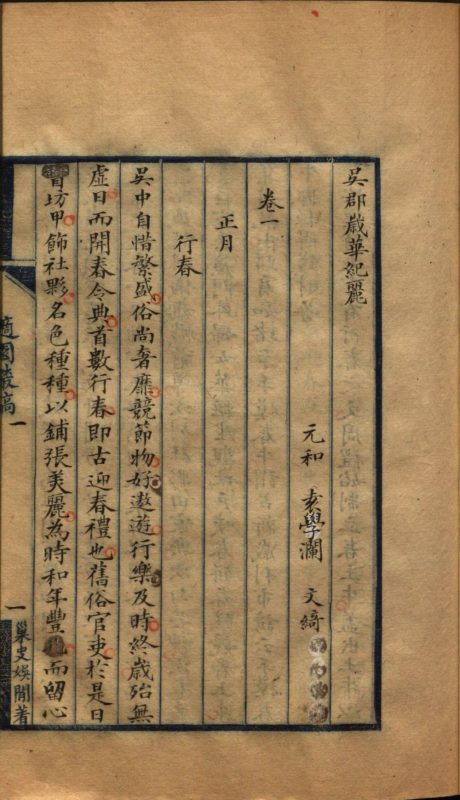 吳郡歲華紀麗
元和 袁學瀾 文綺
卷一
正月
行春
吳中自惜繁盛俗尚奢靡競節物好遨遊行樂及時終歲殆無
虛日而開春令典首數行春即古迎春禮也舊俗官吏於是日
坊甲飾社夥名色種種以鋪張美麗為時和年豐而留心
適園叢稿 一 一 巢史娛閒著